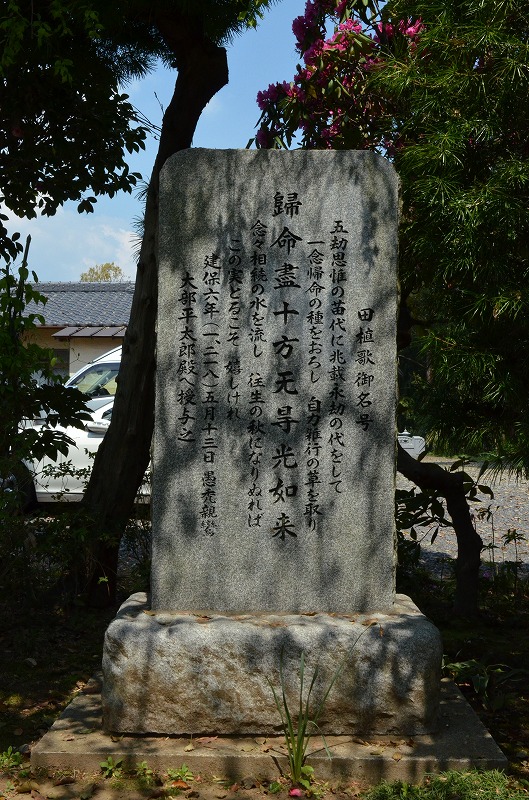 田植歌御名号
五劫思惟の苗代に兆載永劫の代をして
一念帰命の種をおろし 自力雑行の草を取り
歸命盡十方无㝵光如来
念々相続の水を流し 往生の秋になりぬれば
この実とるこそ 嬉しけれ
建保六年(一、二一八)五月十三日 愚禿親鸞
大部平太郎殿へ授与之